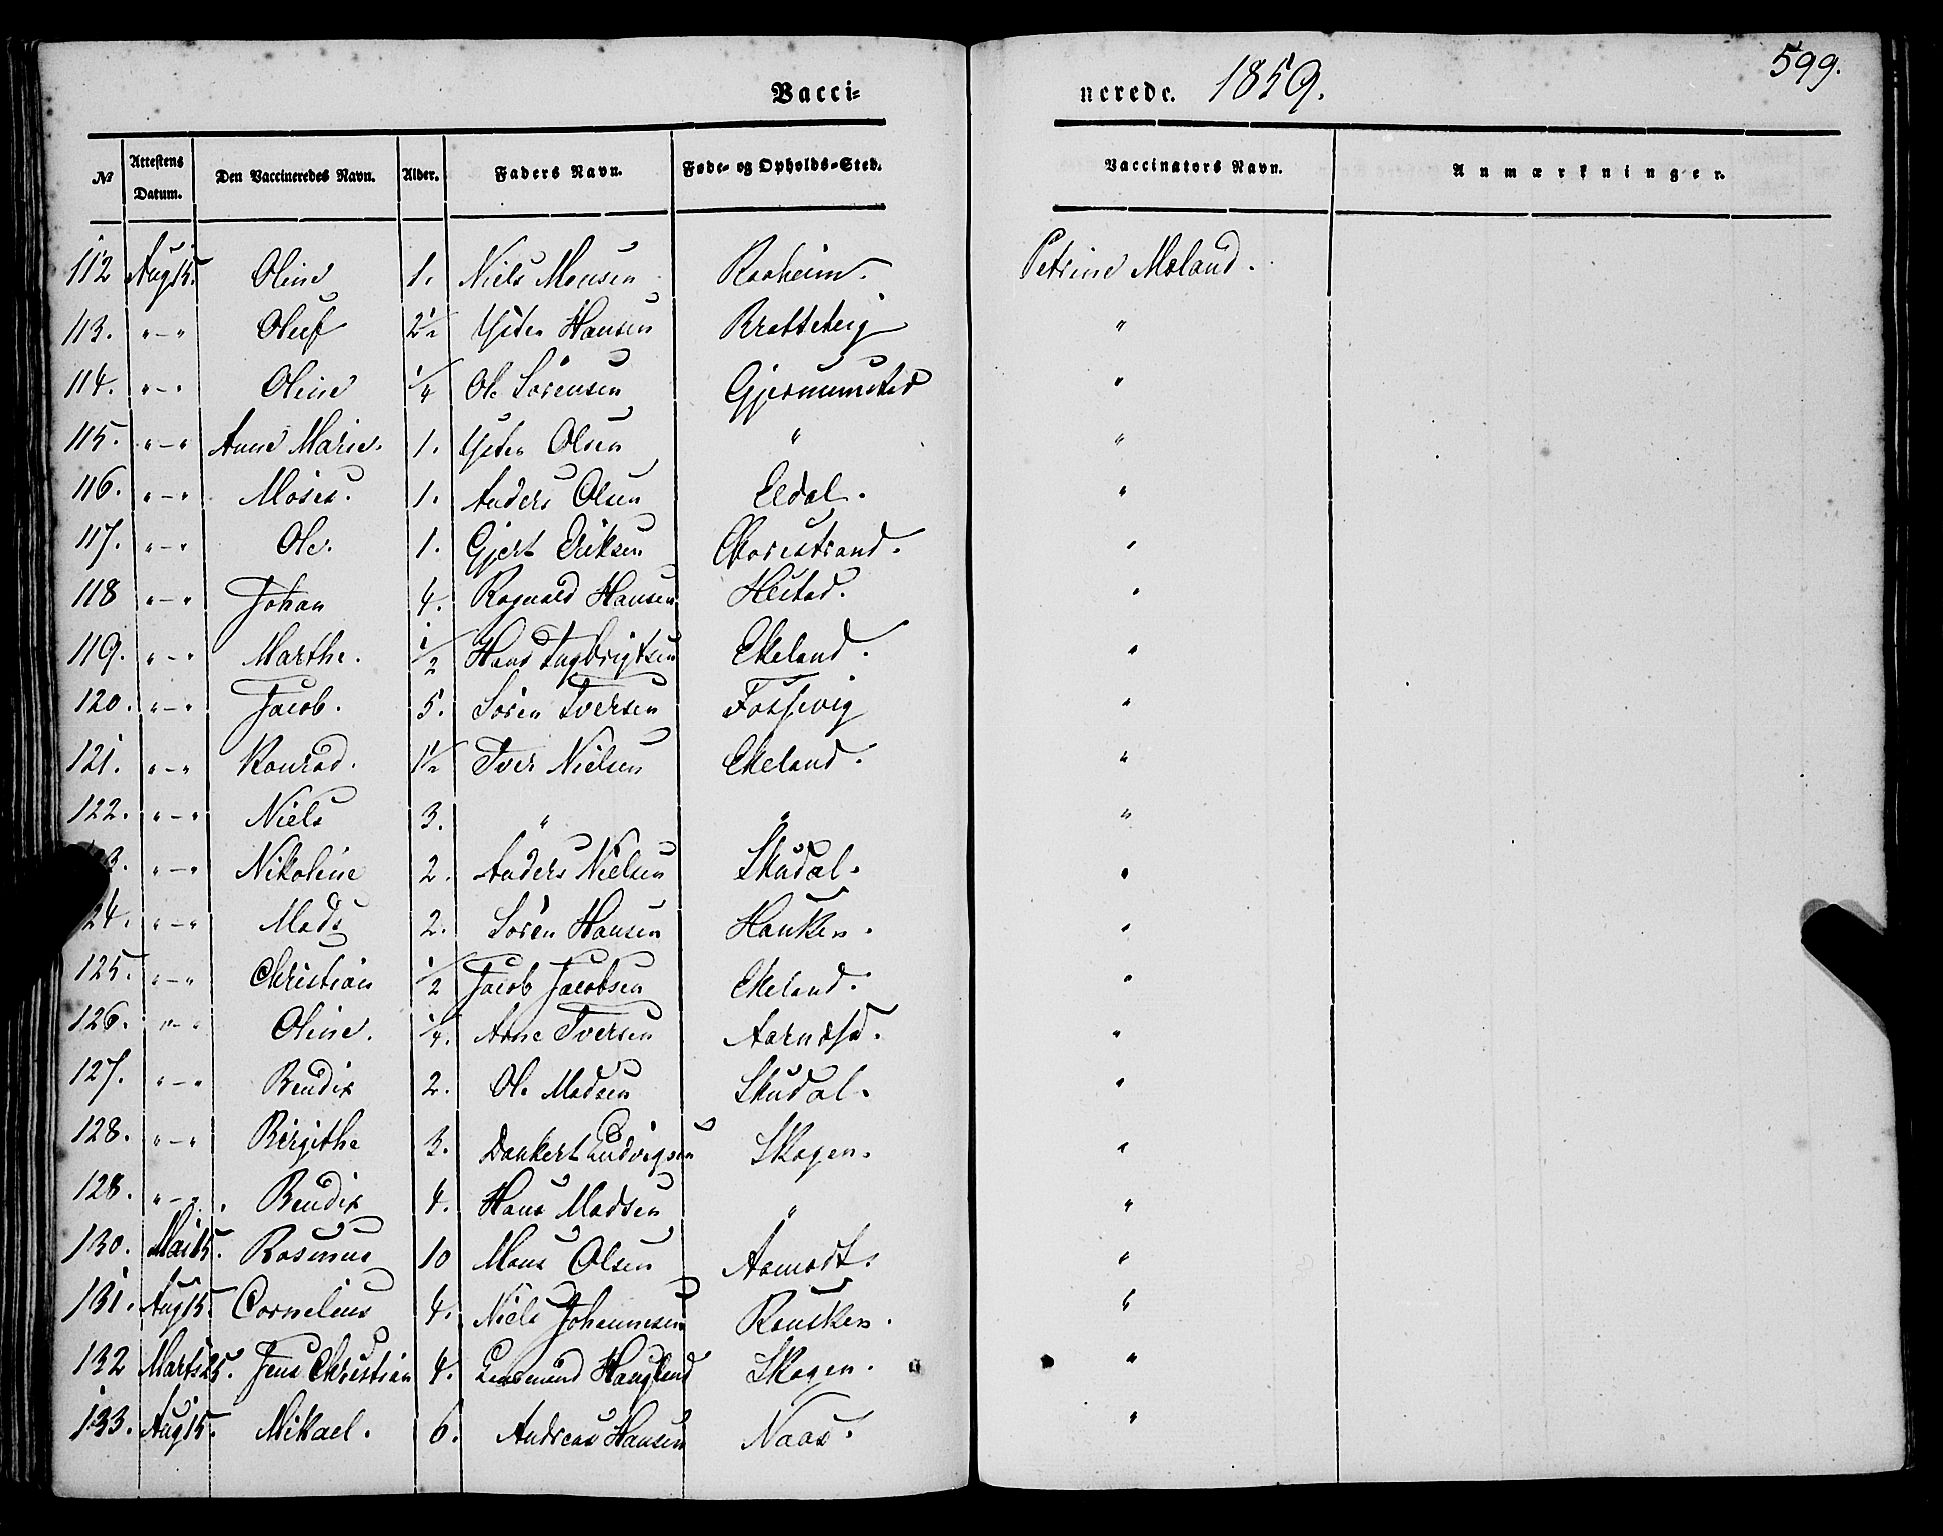 Vacci- nerede. 1859. 599.
№ Attestens Datum. Den Vaccineredes Navn. Alder. Faders Navn. Føde- og Opholds-Sted. Vaccinators Navn. Anmærkninger.
112 Aug 15. Oline 1. Niels Monsen Raaheim. Petrine Moland.
113. "-" Oluf 2½ Peder Hansen Bratteteig "
114. "-" Oline ¼ Ole Sørensen Gjernumsted "
115. "-" Anne Marie. 1. Peder Olsen " "
116. "-" Moses. 1. Anders Olsen Eldal. "
117. "-" Ole. 1. Gjert Eriksen "
118 "-" Johan 4. Ragnald Hansen Hestad. "
119. "-" Marthe. ½ Hans Ingbrigtsen Ekeland. "
120. "-" Jacob. 5. Søren Iversen Fossevig "
121. "-" Konrad. 1½ Iver Nielsen Ekeland. "
122. "-" Niels 3. " " "
3. "-" Nikoline 2. Anders Nielsen Skudal. "
24. "-" Mads 2. Søren Hansen Hauken. "
125. "-" Christian ½ Jacob Jacobsen Ekeland. "
126. "-" Oline. ¼. Arne Iversen "
127. "-" Bendix 2. Ole Madsen Skudal. "
128. "-" Birgithe 3. Dankert Ludvigsen Skogen. "
128. "-" Bendix 4. Hans Madsen " "
130. Mai 15. Rasmus 10 Mons Olsen Aamodt. "
131. Aug 15. Cornelius 4. Niels Johannesen Rausken. "
132 Marts 25. Jens Christian 4. Haugland Skogen. "
133. Aug 15. Mikael. 6. Andreas Hansen Naas. "